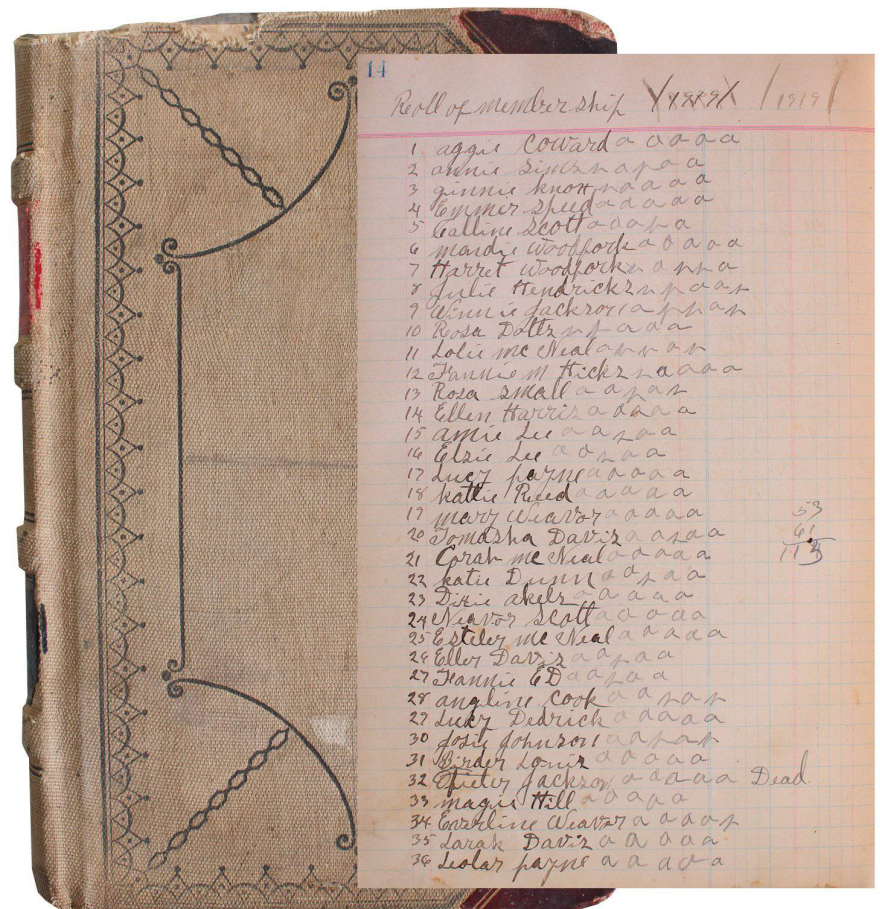 14
Roll of membership 1919
1 aggie Coward a a a a a
2 annie Sims n a p a a
3 ginnie knott n a a a a
4 Emmer Speed a a a a a
5 Calline Scott a a a p a
6 mandie Woodfork a a a a a
7 Harret Woodfork n a p p a
8 Julie Hendricks n p a a p
9 Winnie Jackson a p p a p
10 Rosa Dotts n p a a a
11 Lolie mc Neal
12 Fannie M Hicks n a a a a
13 Rosa Small a a p a p
14 Ellen Harris a a a a a
15 amie Lee a a p a a
16 Elzie Lee a a p a a
17 Lucy payne a a a a a
18 kattie Reed a a a a a
19 mary Weavor a a a a a
53
20 Tomasha Davis a a p a a
61
21 Corah mc Neal a a a a a
113
22 katie Dunn a a p a a
23 Dixie akels a a a a a
24 Scott a a a a a
25 Esteler mc Neal a a a a a
26 Eller Davis a a p a a
27 Fannie ED a a p a a
28 angline Cook a a p a p
29 Lucy Dedrick a a a a a
30 Josie Johnson a a p a p
31 Birder Loniz a a a a a
32 Jackson a a a a a Dead
33 magie Hill a a a a a
34 Everline Weavor a a a a p
35 Sarah Davis a a a a a
36 Leolar payne a a a a a